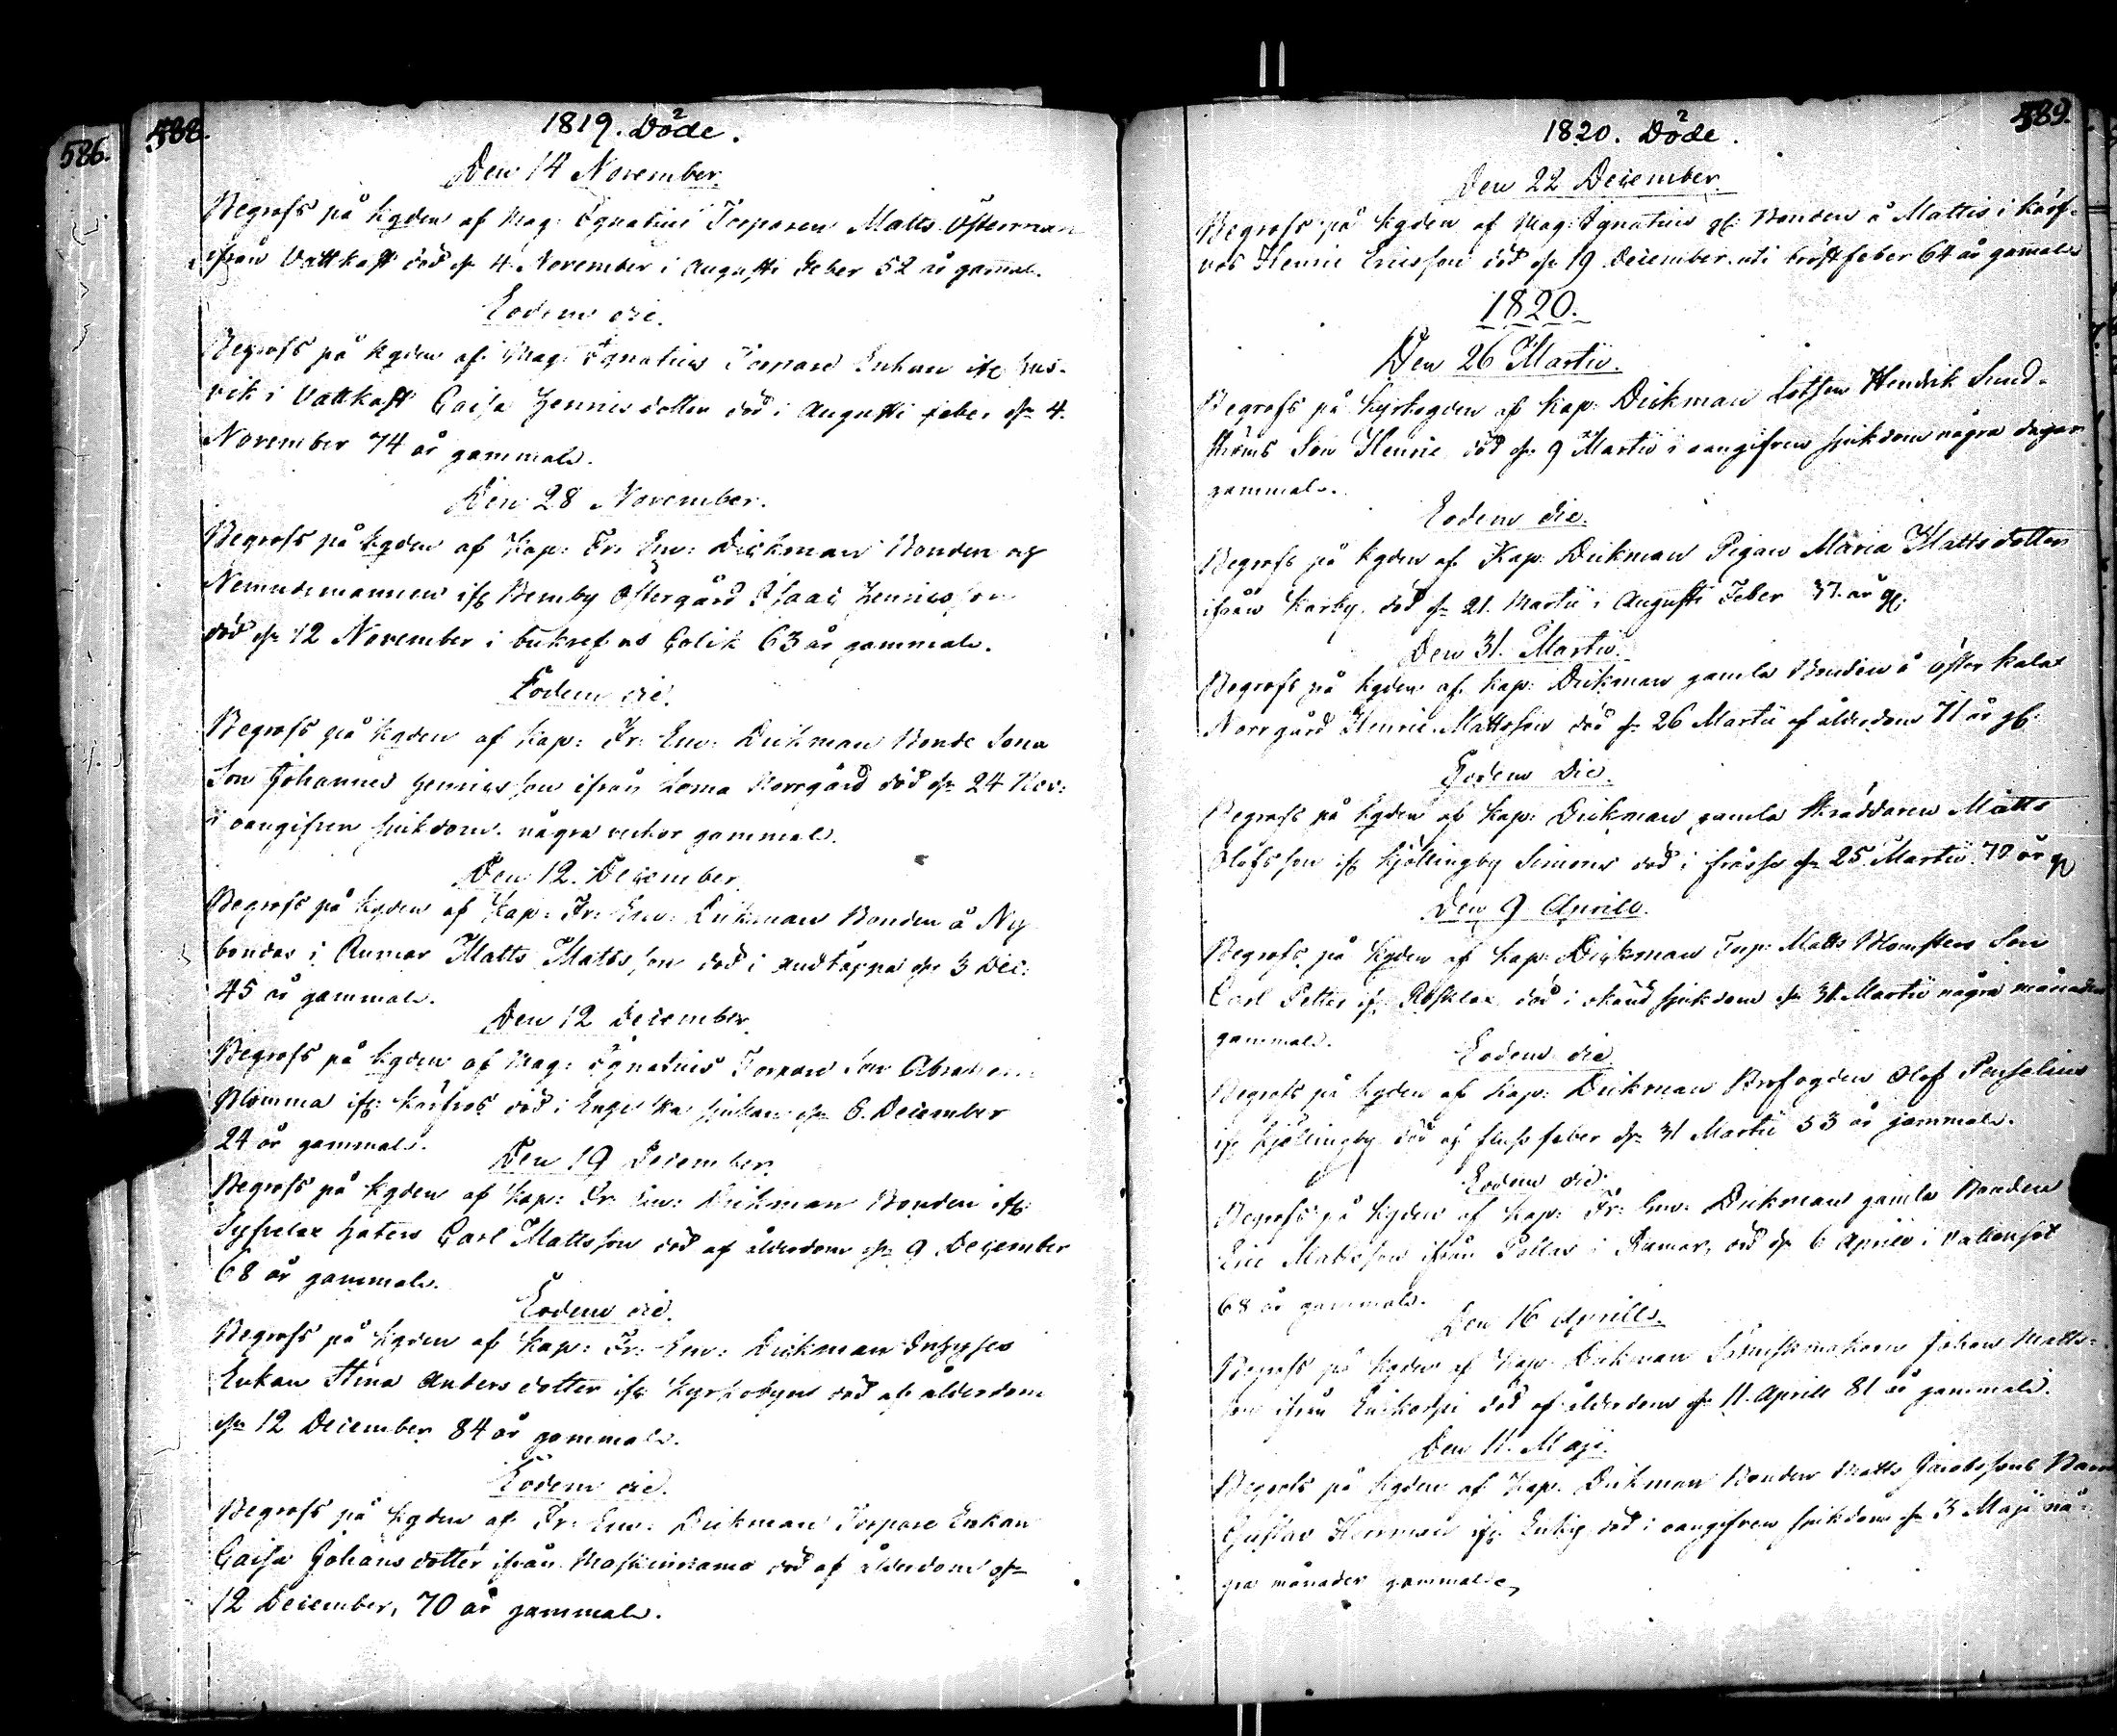 586.
588.
1819. Döde.
Den 14 November.
Begrofs på kgden af Mag: Ignatius Torparen Matts Österman
ifrån Vattkast död d. 4 November i Augusti Feber 52 år gammal.
Eodem die.
Begrofs på kgden af Mag: Ignatius Torpare Enkan ifr
vik i Vattkast Caisa Henricsdotter död i Augusti feber d. 4.
November 74 år gammal.
Den 28 November.
Begrofs på kgden af Kap: Fr: Em: Dickman Bonden og
Nemndemannen ifr Bemby Östergård Isaac Henricsson
död d. 12 November i bukref og Colik 63 år gammal.
Eodem die.
Begrofs på kgden af Kap: Fr: Em: Dickman Bonde Sona
Son Johannes Henricsson ifrån Löma Norrgård död d. 24 Nov:
i oangifven siukdom några veckor gammal.
Den 12. December.
Begrofs på kgden af Kap: Fr: Em: Dickman Bonden å Ny
bondas i Rumar Matts Mattsson död i andtäppa d. 3 Dec:
45 år gammal.
Den 12 December.
Begrofs på kgden af Mag: Ignatius Torpare Son Abraham
Blomma ifr: Kårfvos död i Engelska siukan d. 6. December
24 år gammal.
Den 19 December.
Begrofs på kgden af Kap: Fr: Em: Dickman Bonden ifr:
Carl Mattsson död af ålderdom d. 9 December
68 år gammal.
Eodem die.
Begrofs på kgden af Kap: Fr: Em: Dickman Inhyses
Enkan Stina Andersdotter ifr kyrkobyn död af ålderdom
d. 12 December 84 år gammal.
Eodem die.
Begrofs på kgden af Fr: Em: Dickman Torpare Enkan
Caisa Johansdotter ifrån Maskinnamo död af ålderdom d.
12 December, 70 år gammal.
589.
1820. Döde.
Den 22 December.
Begrofs på kgden af Mag: Ignatius gl: Bonden å Mattis i Kårf-
vos Henric Ericsson död d. 19 December uti bröstfeber 64 år gammal
1820.
Den 26 Martii.
Begrofs på kyrkogden af Kap: Dickman Lotsen Hendrik Sund-
ströms Son Henric död d. 9 Martii i oangifven siukdom några dagar
gammal.
Eodem die.
Begrofs på kgden af Kap: Dickman Pigan Maria Mattsdotter
ifrån Korby död d. 21. Martii i Augusti Feber 37 år gl:
Den 31. Martii.
Begrofs på kgden af Kap: Dickman gamla Bonden å Öster kalax
Norrgård Henric Mattsson död d. 26 Martii af ålderdom 71 år gl:
Eodem Die.
Begrofs på kgden af Kap: Dickman gamla Skräddaren Matts
Olofsson ifr Kjällingby Simons död i frossa d. 25. Martii 70 år gl
Den 9 Aprill.
Begrofs på kgden af Kap: Dickman Torp: Matts Blomsten Son
Carl Petter ifr Rosklax död i okänd siukdom d. 31. Martii några månader
gammal.
Eodem die
Begrofs på kgden af Kap: Dickman Brofogden Olof Penselius
ifr Kjällingby död af fluss feber d. 31 Martii 53 år gammal.
Eodem die.
Begrofs på kgden af Kap: Fr: Em: Dickman gamla Bonden
Eric Mattsson ifrån Pellas i Rumar, död d. 6 Aprill i vattusot
68 år gammal.
Den 16 Aprill.
Begrofs på kgden af Kap: Dickman Johan Matts-
son ifrån död af ålderdom d. 11. Aprill 81 år gammal.
Den 11. Maji.
Begrofs på kgden af Kap. Dickman Bonden Matts Jacobssons Barn
Gustav Herman ifr död i oangifven siukdom d. 3 Maji nå-
gra månader gammal.